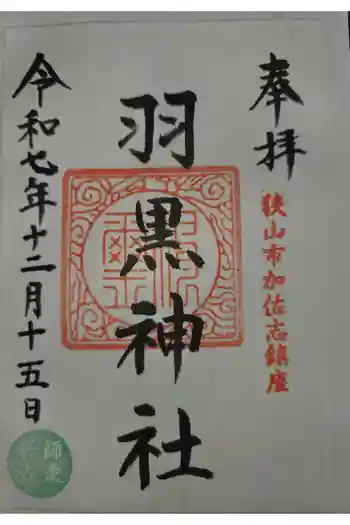 奉拝
狭山市加佐志鎮座
羽黒神社
令和七年十二月十五日